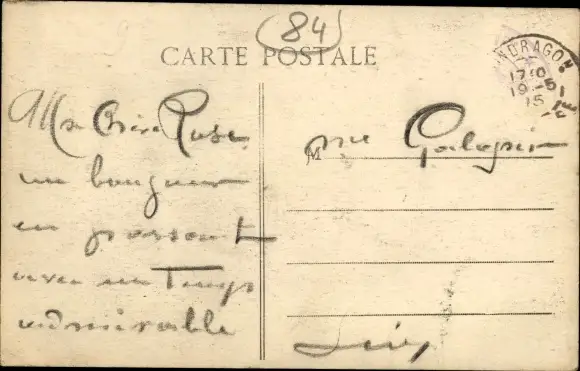 84
CARTE POSTALE
NDRAGON
17 10
19 - 5
15
Ma Rose
un bonjour
en passant
avec un Temps
admirable
M me